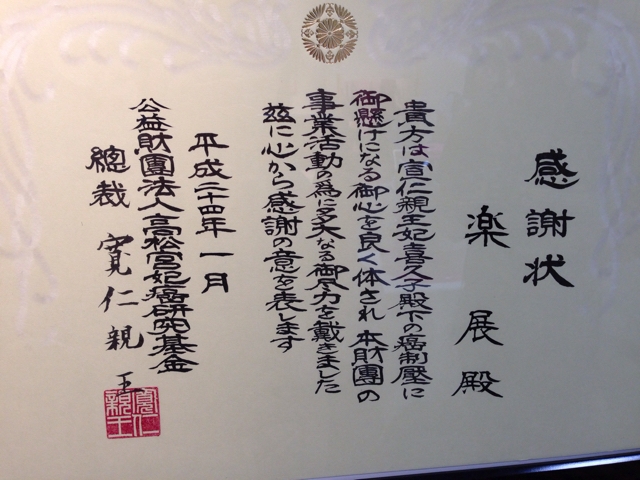 感謝状
楽展殿
貴方は、宣仁親王妃喜久子殿下の癌制壓に
御懸けになる御心を良く体され本財團の
事業活動の為に多大なる御尽力を戴きました
玆に心から感謝の意を表します
平成二十四年一月
公益財團法人高松宮妃癌研究基金
總裁 寬仁親王
寬仁親王